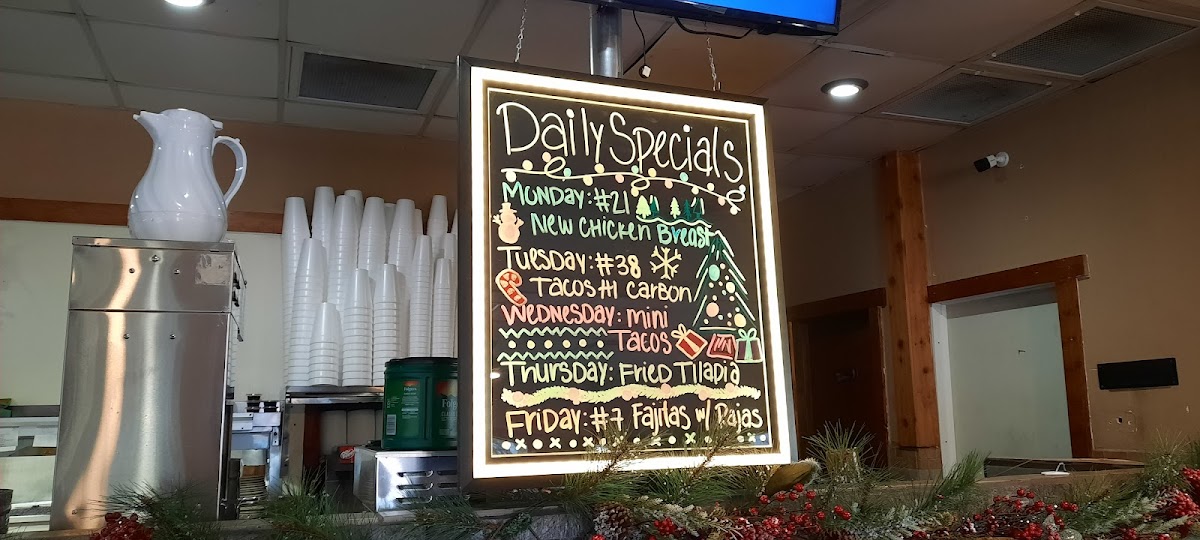 Daily Specials
Monday: #21
New Chicken Breast
Tuesday: #38
Tacos Al Carbon
Wednesday: Mini
Tacos
Thursday: Fried Tilapia
Friday: #7 Fajitas w/ Rajas
Folgers